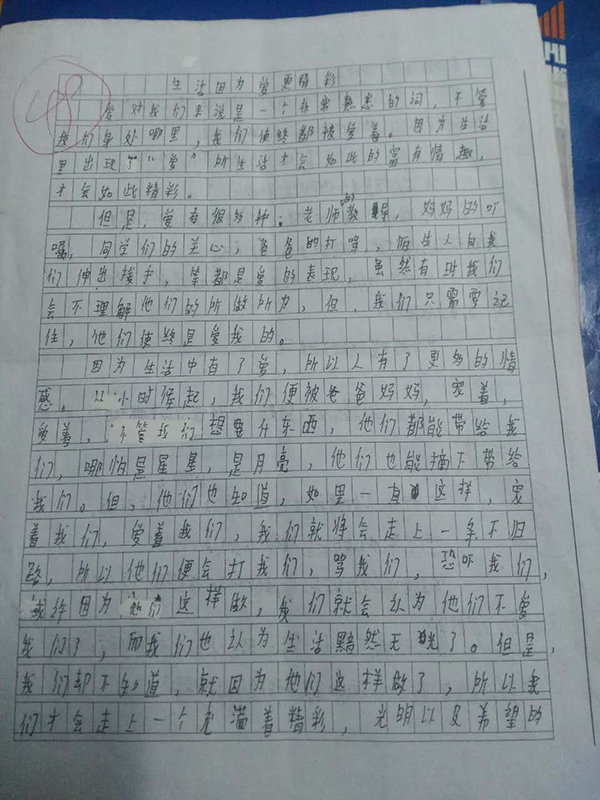 48
生活因为爱更精彩
爱对我们来说是一个非常熟悉的词，不管
我们身处哪里，我们使终都被爱着。因为生活
里出现了"爱"所生活才会如此的富有情趣，
才会如此精彩。
但是，爱有很多种：老师的教导，妈妈的叮
嘱，同学们的关心，爸爸的打骂，陌生人向我
们伸出援手，等都是爱的表现，虽然有时我们
会不理解他们的所做所为，但，我们只需要记
住，他们使终是爱我的。
因为生活中有了爱，所以人有了更多的情
感，从小时候起，我们便被爸爸妈妈，宠着，
爱着，不管我们想要什东西，他们都能带给我
们，哪怕是星星，是月亮，他们也能摘下带给
我们。但，他们也知道，如里一直这样，宠
着我们，爱着我们，我们就将会走上一条不归
路，所以他们便会打我们，骂我们，恐吓我们，
或许因为他们这样做，我们就会认为他们不爱
我们了，而我们也认为生活黯然无光了。但是，
我们却不知道，就因为他们这样做了，所以我
们才会走上一个充满着精彩，光明以及希望的
HI